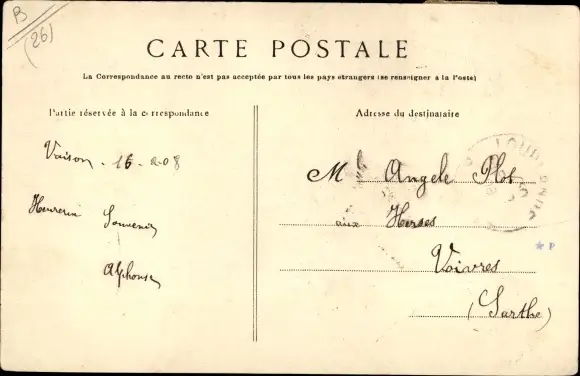 B
(26)
CARTE POSTALE
La Correspondance au recto n'est pas acceptée par tous les pays étrangers (se renseigner à la Poste)
Partie réservée à la correspondance
Adresse du destinataire
Vaison - 16-2-08
Souvenir
Alphonse
Mlle Angele Plot
aux Herses
Voivres
(Sarthe)